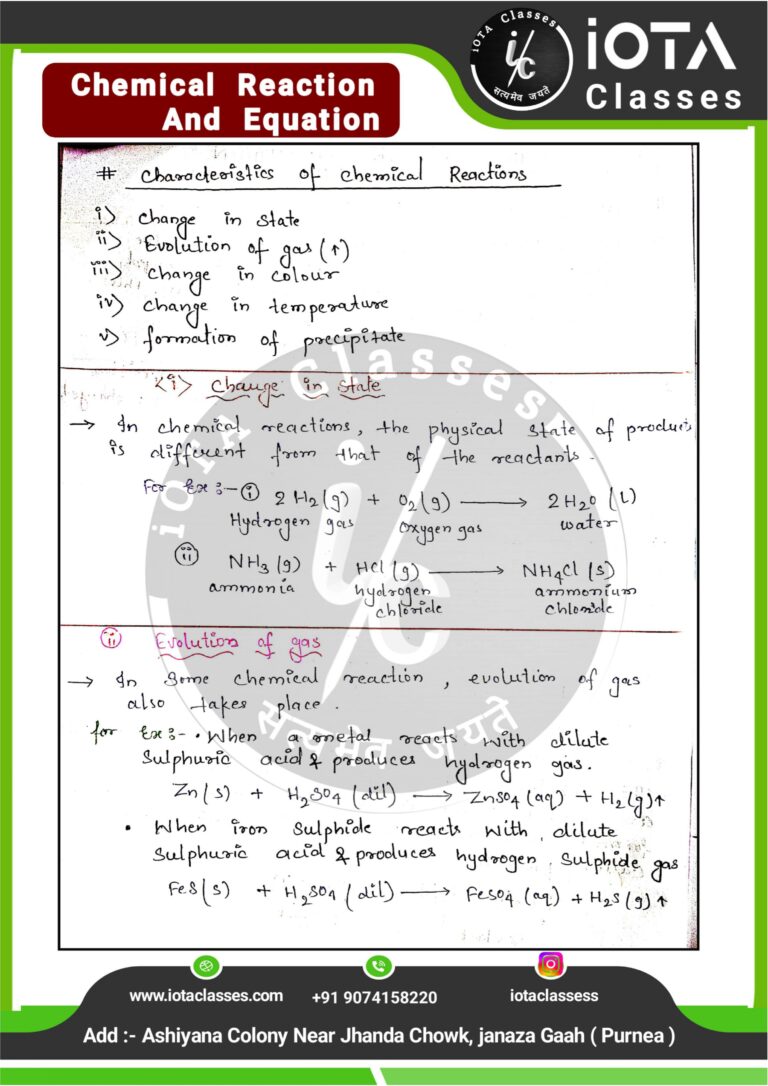 iOTA Classes
i/c
सत्यमेव जयते
iOTA
Classes
Chemical Reaction
And Equation
# Characteristics of Chemical Reactions
i> Change in state
ii> Evolution of gas (↑)
iii> Change in colour
iv> Change in temperature
v> formation of precipitate
<i> Change in state
→ In chemical reactions, the physical state of products
is different from that of the reactants.
For Ex :- (i) 2H₂(g) + O₂(g) ⟶ 2H₂O (l)
Hydrogen gas Oxygen gas water
(ii) NH₃(g) + HCl(g) ⟶ NH₄Cl(s)
ammonia hydrogen ammonium
chloride chloride
(ii) Evolution of gas
→ In Some chemical reaction, evolution of gas
also takes place.
for Ex:- • When a metal reacts with dilute
Sulphuric acid & produces hydrogen gas.
Zn(s) + H₂SO₄(dil) ⟶ ZnSO₄(aq) + H₂(g)↑
• When iron Sulphide reacts with dilute
Sulphuric acid & produces hydrogen Sulphide gas
FeS(s) + H₂SO₄(dil) ⟶ FeSO₄(aq) + H₂S(g)↑
iOTA Classes
i/c
सत्यमेव जयते
www.iotaclasses.com +91 9074158220 iotaclassess
Add :- Ashiyana Colony Near Jhanda Chowk, janaza Gaah ( Purnea )